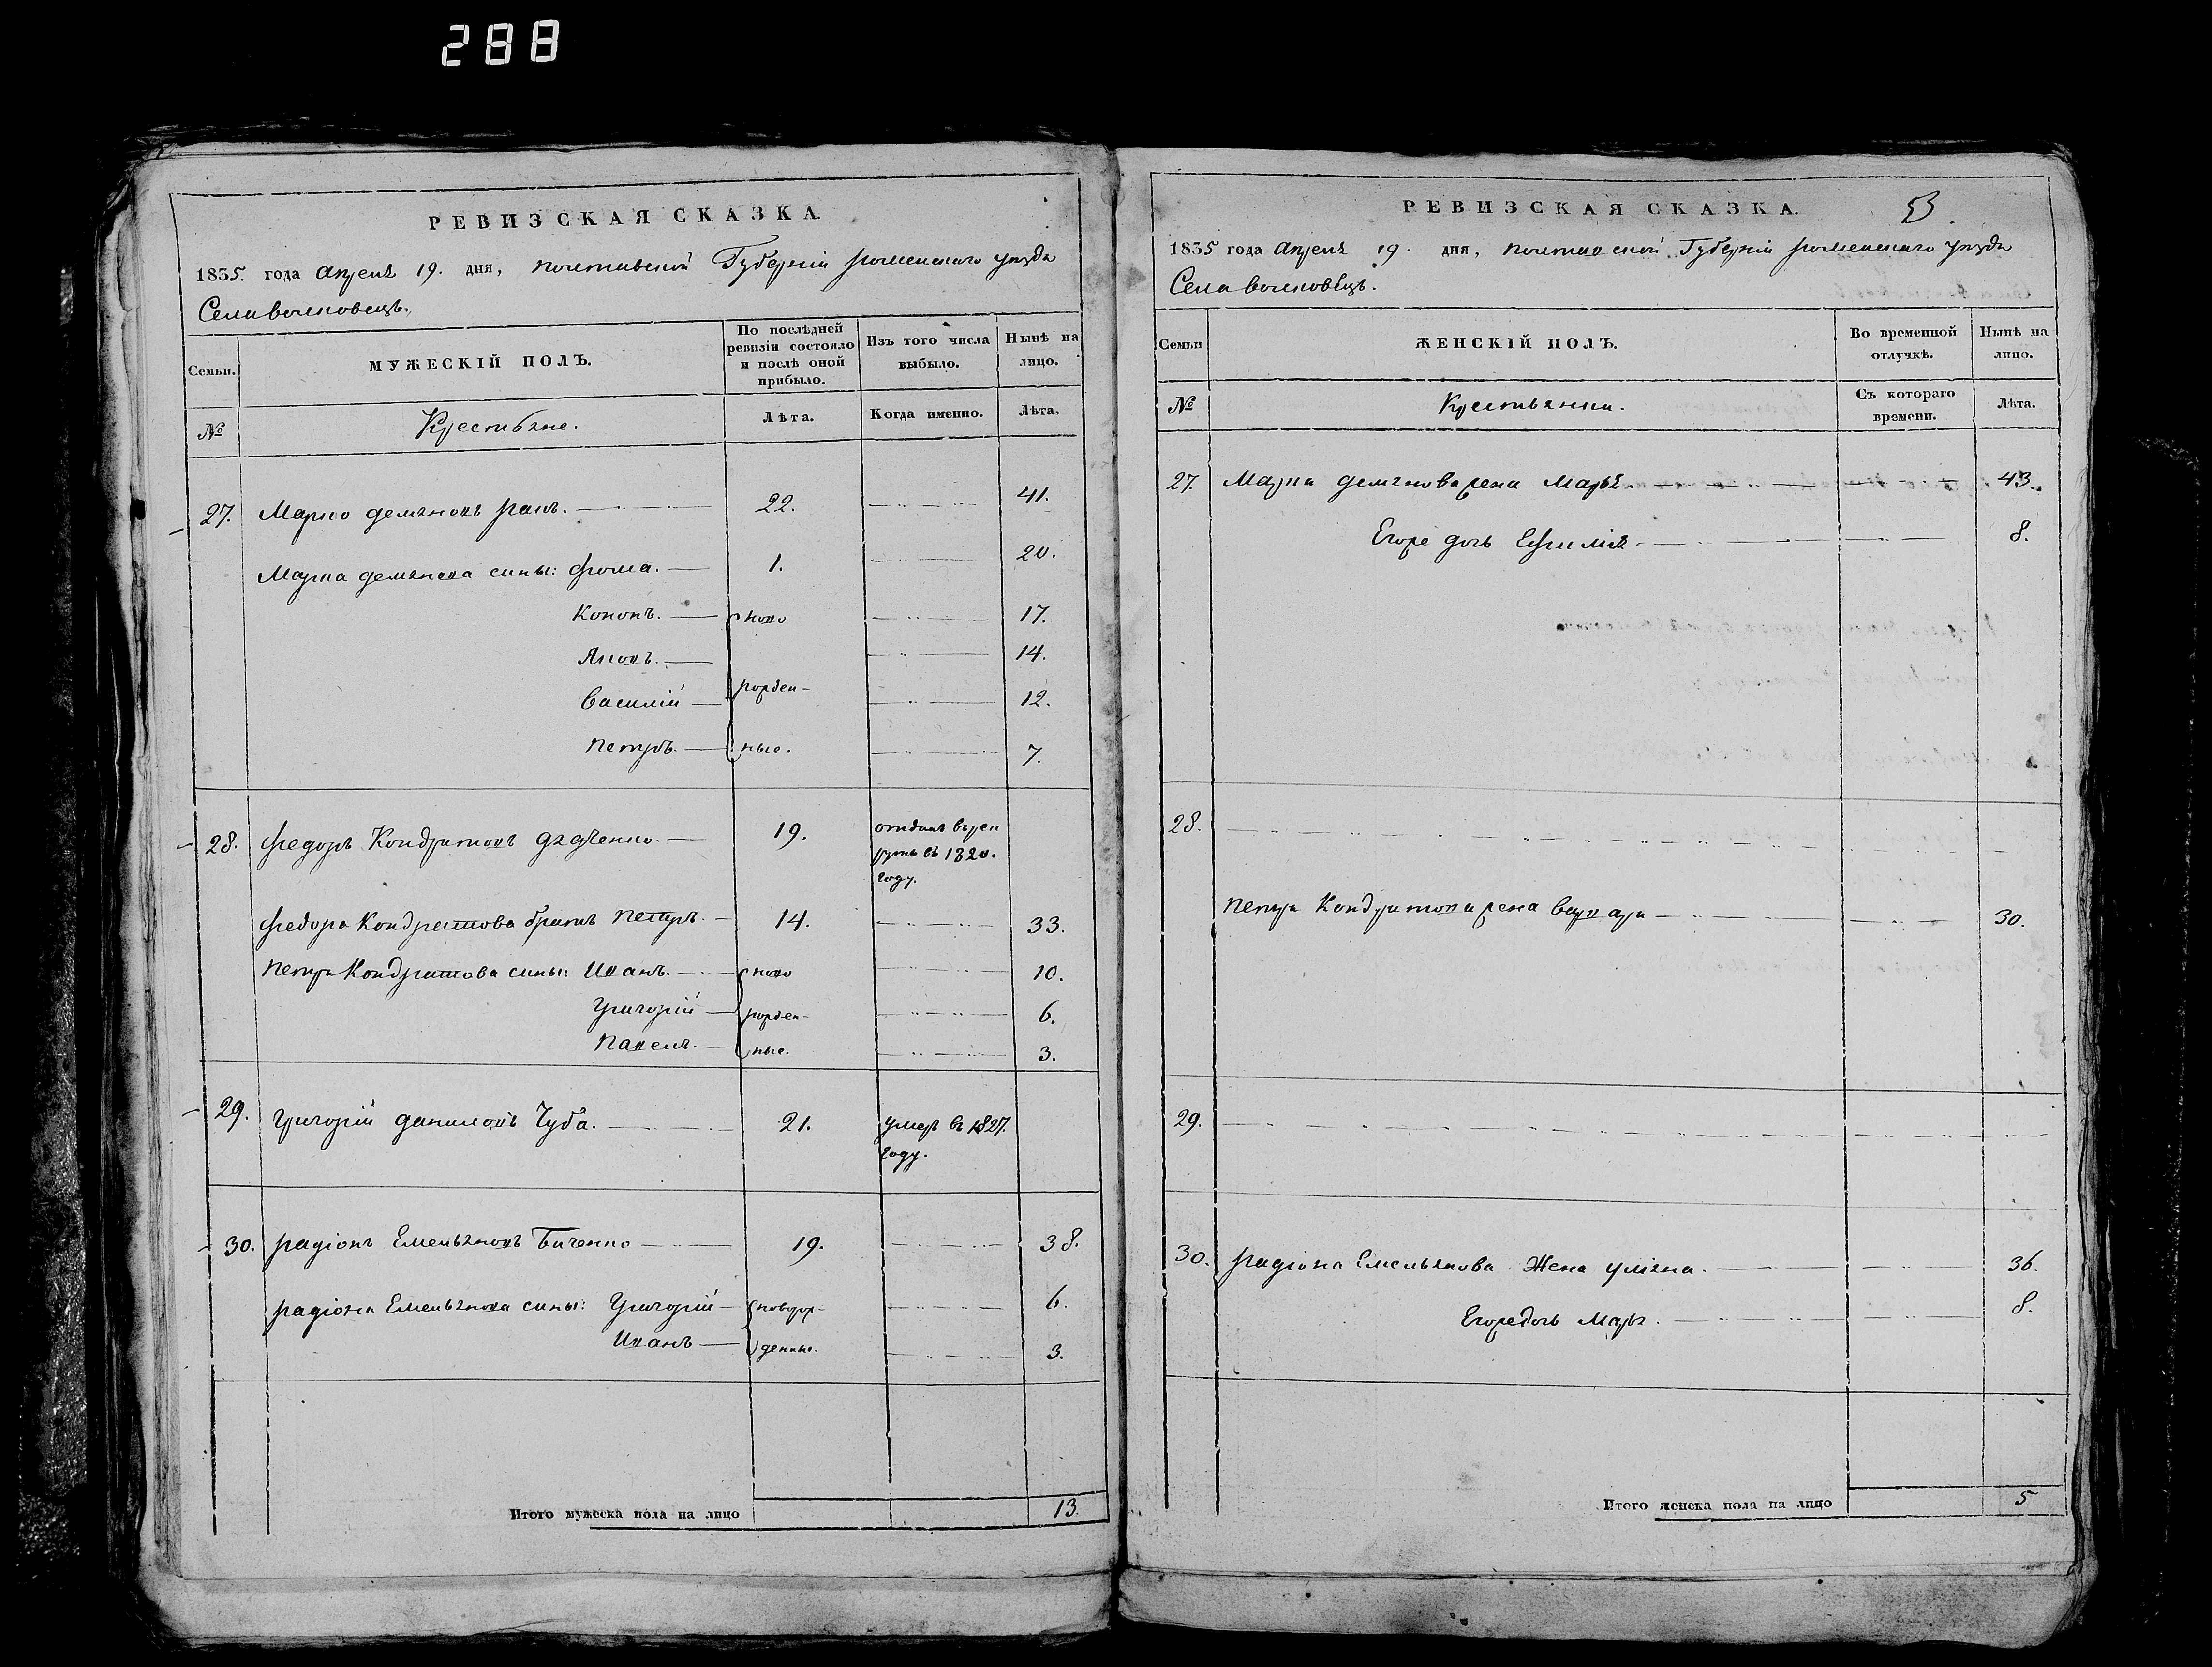 288
РЕВИЗСКАЯ СКАЗКА.
1835. года Апреля 19. дня, полтавской Губерніи роменского уезда
Села волковецъ.
Семьи. МУЖЕСКІЙ ПОЛЪ. По послѣдней ревизіи состояло и послѣ оной прибыло. Изъ того числа выбыло. Нынѣ на лицо.
№ Крестьяне. Лѣта. Когда именно. Лѣта.
27. Марко демяновъ ракъ. 22. 41.
Марка демянова сины: фома. 1. 20.
Кононъ. ново 17.
Яковъ. 14.
василій рожден- 12.
петръ. ные. 7.
28. федоръ Кондратовъ 19. отданъ врек
руты въ 1820.
году.
федора Кондратова братъ петръ. 14. 33.
петра Кондратова сины: Иванъ. ново 10.
Григорій рожден- 6.
павелъ. ные. 3.
29. григорій даниловъ Чуба. 21. умеръ въ 1827.
году.
30. радіонъ Емельяновъ Биченко 19. 38.
радіона Емельянова сины: Григорій новорож- 6.
Иванъ денные. 3.
Итого мужеска пола на лицо 13.
РЕВИЗСКАЯ СКАЗКА. 53.
1835 года Апреля 19. дня, полтавской Губерніи роменскаго уезда
Села волковѣцъ.
Семьи ЖЕНСКІЙ ПОЛЪ. Во временной отлучкѣ. Нынѣ на лицо.
№ Крестьянки. Съ котораго времени. Лѣта.
27. Марка демянова жена Марья. 43.
Егоже дочь Ефимія. 8.
28.
петра Кондратова жена варвара 30.
29.
30. радіона Емельянова Жена уліяна. 36.
Егоже дочь Марья. 8.
Итого женска пола на лицо 5